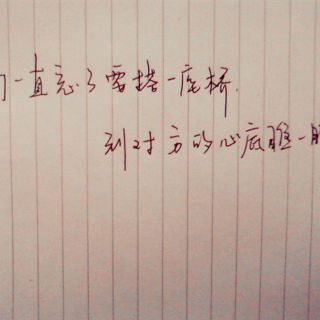 们一直忘了要搭一座桥
到对方的心底瞧一瞧